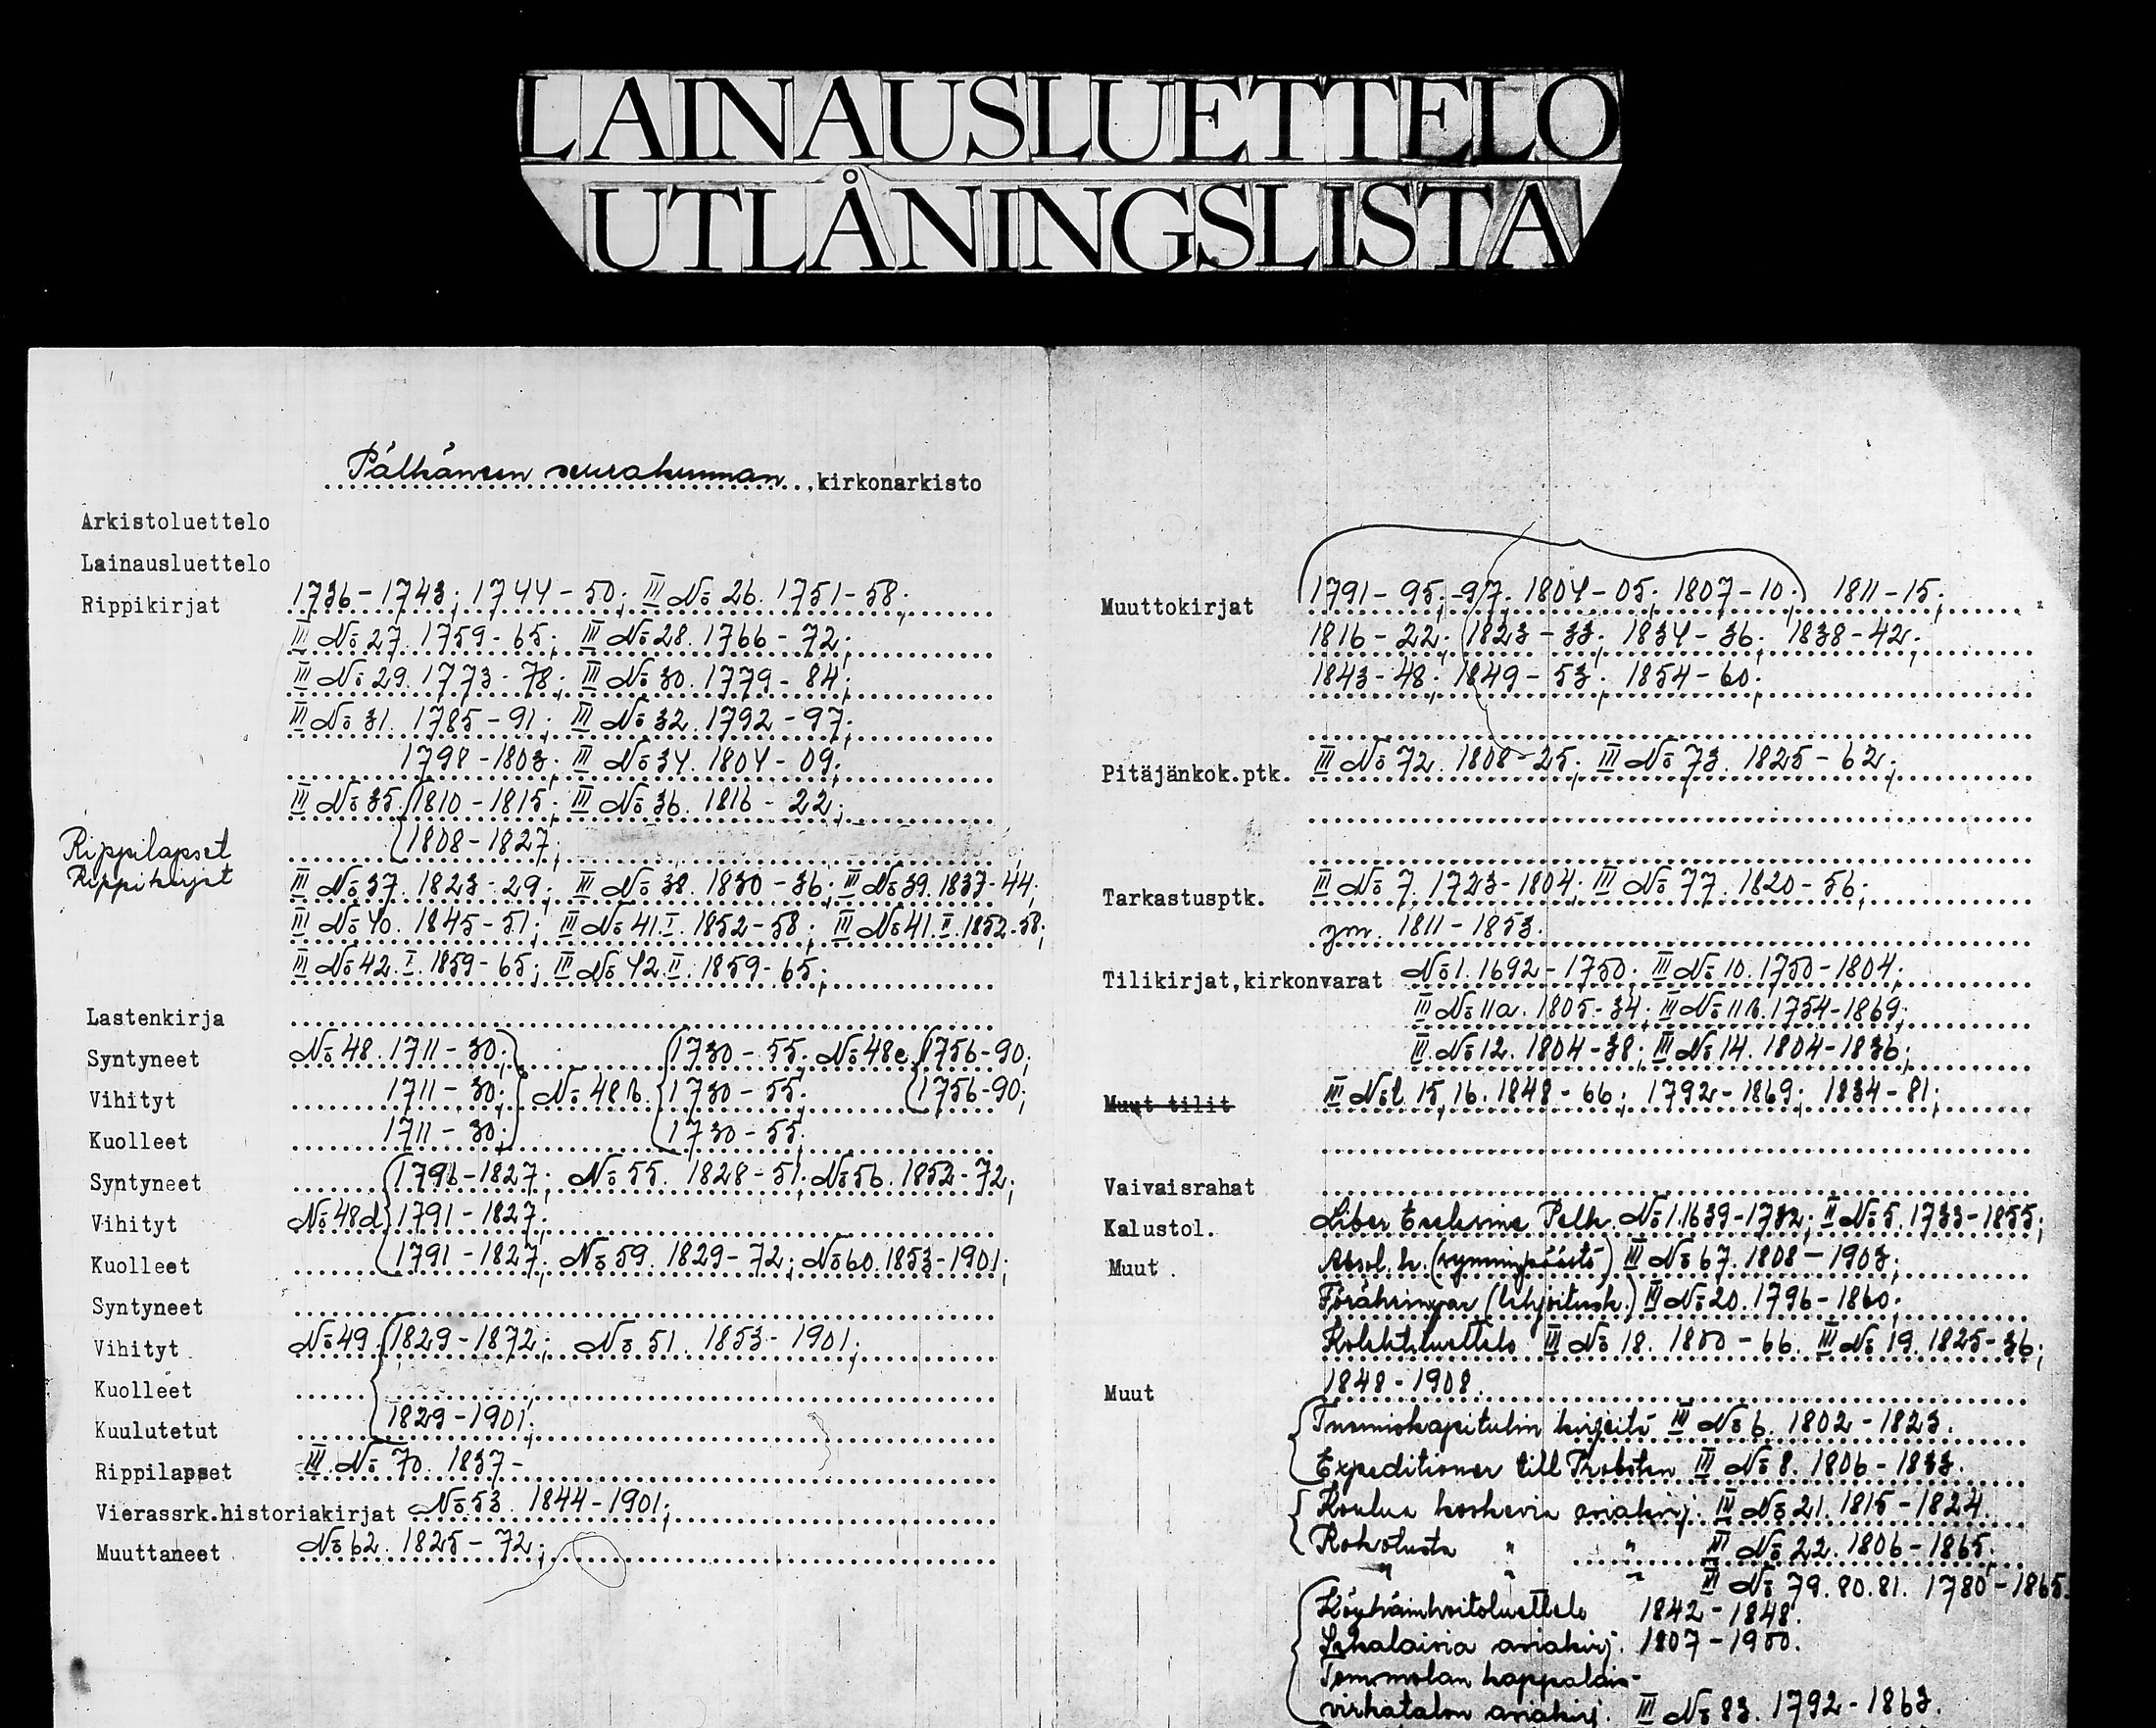 LAINAUSLUETTELO
UTLÅNINGSLISTA
Pälkäneen seurakunnan kirkonarkisto
Arkistoluettelo
Lainausluettelo
Rippikirjat 1736-1743; 1744-50; III No 26. 1751-58;
III No 27. 1759-65; III No 28. 1766-72;
III No 29. 1773-78; III No 30. 1779-84;
III No 31. 1785-91; III No 32. 1792-97;
1798-1803; III No 34. 1804-09;
III No 35. 1810-1815; III No 36. 1816-22;
Rippilapset 1808-1827;
Rippikirjat III No 37. 1823-29; III No 38. 1830-36; III No 39. 1837-44;
III No 40. 1845-51; III No 41.I. 1852-58; III No 41.II. 1852-58;
III No 42.I. 1859-65; III No 42.II. 1859-65;
Lastenkirja
Syntyneet No 48. 1711-30; 1730-55; No 48c. 1756-90;
Vihityt 1711-30; No 48b. 1730-55; 1756-90;
Kuolleet 1711-30; 1730-55;
Syntyneet 1796-1827; No 55. 1828-51; No 56. 1852-72;
Vihityt No 48d 1791-1827;
Kuolleet 1791-1827; No 59. 1829-72; No 60. 1853-1901;
Syntyneet
Vihityt No 49. 1829-1872; No 51. 1853-1901;
Kuolleet
Kuulutetut 1829-1901;
Rippilapset III No 70. 1837-
Vierassrk.historiakirjat No 53. 1844-1901;
Muuttaneet No 62. 1825-72;
Muuttokirjat 1791-95; -97. 1804-05; 1807-10; 1811-15;
1816-22; 1823-33; 1834-36; 1838-42;
1843-48; 1849-53; 1854-60;
Pitäjänkok.ptk. III No 72. 1808-25; III No 73. 1825-62;
Tarkastusptk. III No 7. 1723-1804; III No 77. 1820-56;
ym. 1811-1853.
Tilikirjat,kirkonvarat No 1. 1692-1750; III No 10. 1750-1804;
III No 11a. 1805-34; III No 11b. 1754-1869;
III No 12. 1804-38; III No 14. 1804-1836;
Muut tilit III No 15, 16. 1848-66; 1792-1869; 1834-81;
Vaivaisrahat
Kalustol. Liber Ecclesiae Pelk. No 1. 1639-1732; II No 5. 1733-1855;
Muut Absol. k. (synninpäästö) III No 67. 1808-1903;
Föräringar (lahjoitusk.) III No 20. 1796-1860;
Kolehtiluettelo III No 18. 1800-66. III No 19. 1825-36;
Muut 1848-1908.
Tuomiokapitulin kirjeitä III No 6. 1802-1823.
Expeditioner till Probsten III No 8. 1806-1833.
Koulua koskevia asiakirj. III No 21. 1815-1824.
Rokotusta " " III No 22. 1806-1865.
" " " III No 79. 80. 81. 1780-1865.
Köyhäinhoitoluettelo 1842-1848.
Sekalaisia asiakirj. 1807-1900.
Tommolan kappalais-
virkatalon asiakirj. III No 83. 1792-1863.